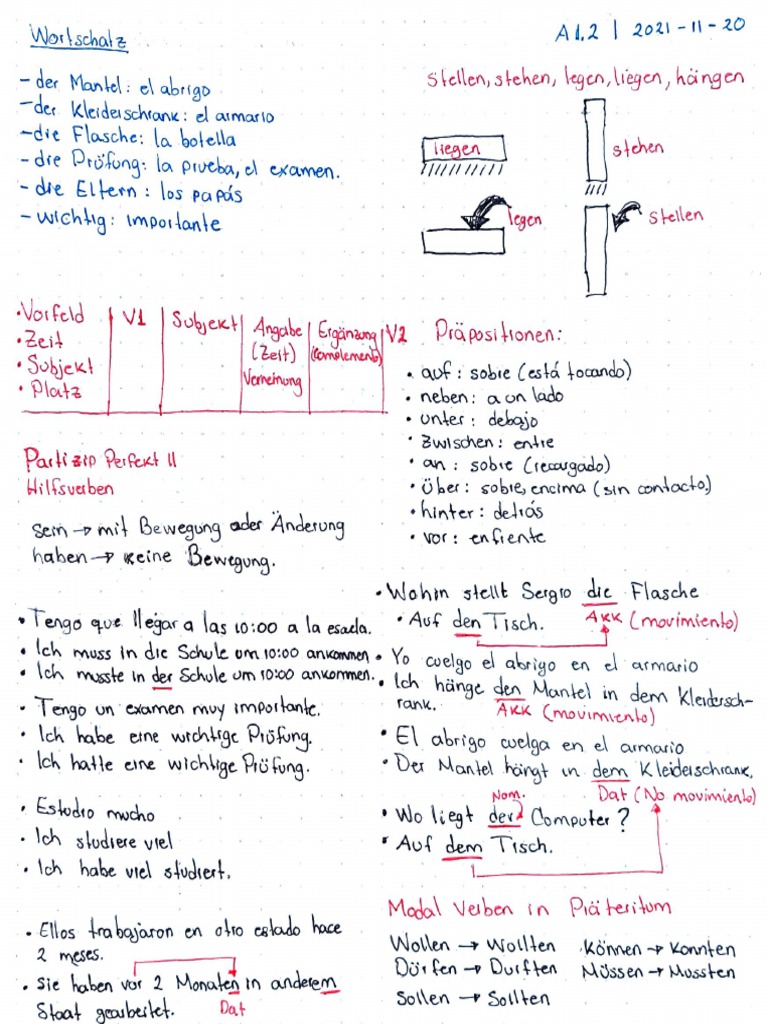 Wortschatz
A1.2 | 2021-11-20
- der Mantel: el abrigo
- der Kleiderschrank: el armario
- die Flasche: la botella
- die Prüfung: la prueba, el examen.
- die Eltern: los papás
- wichtig: importante
stellen, stehen, legen, liegen, hängen
liegen
stehen
legen
stellen
• Vorfeld
• Zeit
• Subjekt
• Platz
V1
Subjekt
Angabe
(Zeit)
Verneinung
Ergänzung
(complemento)
V2
Partizip Perfekt II
Hilfsverben
sein → mit Bewegung oder Änderung
haben → keine Bewegung.
Präpositionen:
• auf: sobre (está tocando)
• neben: a un lado
• unter: debajo
• zwischen: entre
• an: sobre (recargado)
• über: sobre, encima (sin contacto)
• hinter: detrás
• vor: enfrente
• Tengo que llegar a las 10:00 a la escuela.
• Ich muss in die Schule um 10:00 ankommen
• Ich musste in der Schule um 10:00 ankommen.
• Tengo un examen muy importante.
• Ich habe eine wichtige Prüfung.
• Ich hatte eine wichtige Prüfung.
• Estudio mucho
• Ich studiere viel
• Ich habe viel studiert.
• Ellos trabajaron en otro estado hace
2 meses.
• Sie haben vor 2 Monaten in anderem
Staat gearbeitet.
Dat
• Wohin stellt Sergio die Flasche
• Auf den Tisch.
AKK (movimiento)
• Yo cuelgo el abrigo en el armario
• Ich hänge den Mantel in dem Kleidersch-
rank.
AKK (movimiento)
• El abrigo cuelga en el armario
• Der Mantel hängt in dem Kleiderschrank.
Dat (No movimiento)
Nom.
• Wo liegt der Computer?
• Auf dem Tisch.
Modal Verben in Präteritum
Wollen → Wollten
Können → Konnten
Dürfen → Durften
Müssen → Mussten
Sollen → Sollten